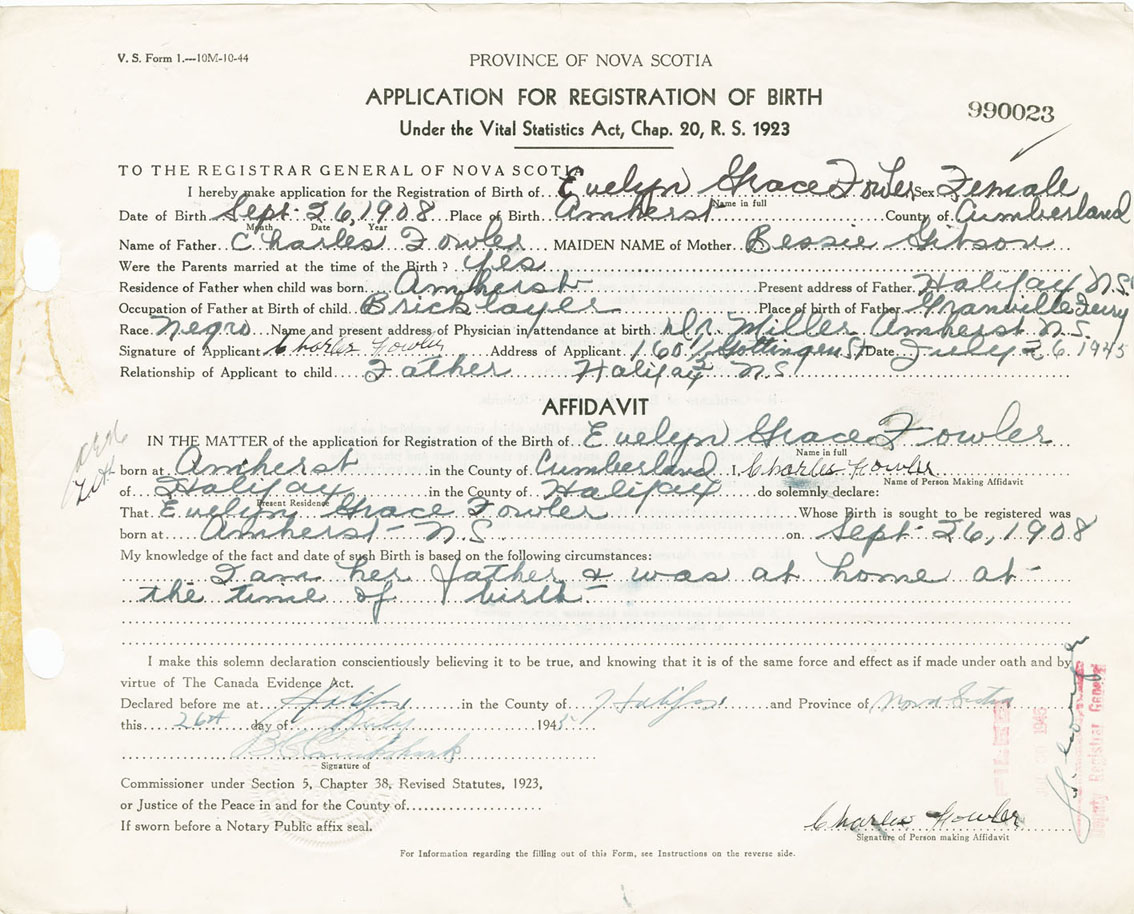 V. S. Form 1.—10M-10-44
PROVINCE OF NOVA SCOTIA
APPLICATION FOR REGISTRATION OF BIRTH
990023
Under the Vital Statistics Act, Chap. 20, R. S. 1923
TO THE REGISTRAR GENERAL OF NOVA SCOTIA
I hereby make application for the Registration of Birth of Evelyn Grace Fowler Sex Female
Name in full
Date of Birth Sept. 26, 1908 Place of Birth Amherst County of Cumberland
Month Date Year
Name of Father Charles Fowler MAIDEN NAME of Mother Bessie Gibson
Were the Parents married at the time of the Birth? Yes
Residence of Father when child was born Amherst Present address of Father Halifax N.S.
Occupation of Father at Birth of child Bricklayer Place of birth of Father Granville Ferry
Race Negro Name and present address of Physician in attendance at birth Dr. Miller Amherst N.S.
Signature of Applicant Charles Fowler Address of Applicant Gottingen St Date July 26 1945
Relationship of Applicant to child Father Halifax N.S.
AFFIDAVIT
IN THE MATTER of the application for Registration of the Birth of Evelyn Grace Fowler
Name in full
born at Amherst in the County of Cumberland I Charles Fowler
Name of Person Making Affidavit
of Halifax in the County of Halifax do solemnly declare:
Present Residence
That Evelyn Grace Fowler Whose Birth is sought to be registered was
born at Amherst N.S. on Sept. 26, 1908
My knowledge of the fact and date of such Birth is based on the following circumstances:
I am her father & was at home at
the time of birth
I make this solemn declaration conscientiously believing it to be true, and knowing that it is of the same force and effect as if made under oath and by
virtue of The Canada Evidence Act.
Declared before me at Halifax in the County of Halifax and Province of Nova Scotia
this 26th day of July 1945
Signature of
Commissioner under Section 5, Chapter 38, Revised Statutes, 1923,
or Justice of the Peace in and for the County of
If sworn before a Notary Public affix seal.
Charles Fowler
Signature of Person making Affidavit
Deputy Registrar General
For Information regarding the filling out of this Form, see Instructions on the reverse side.